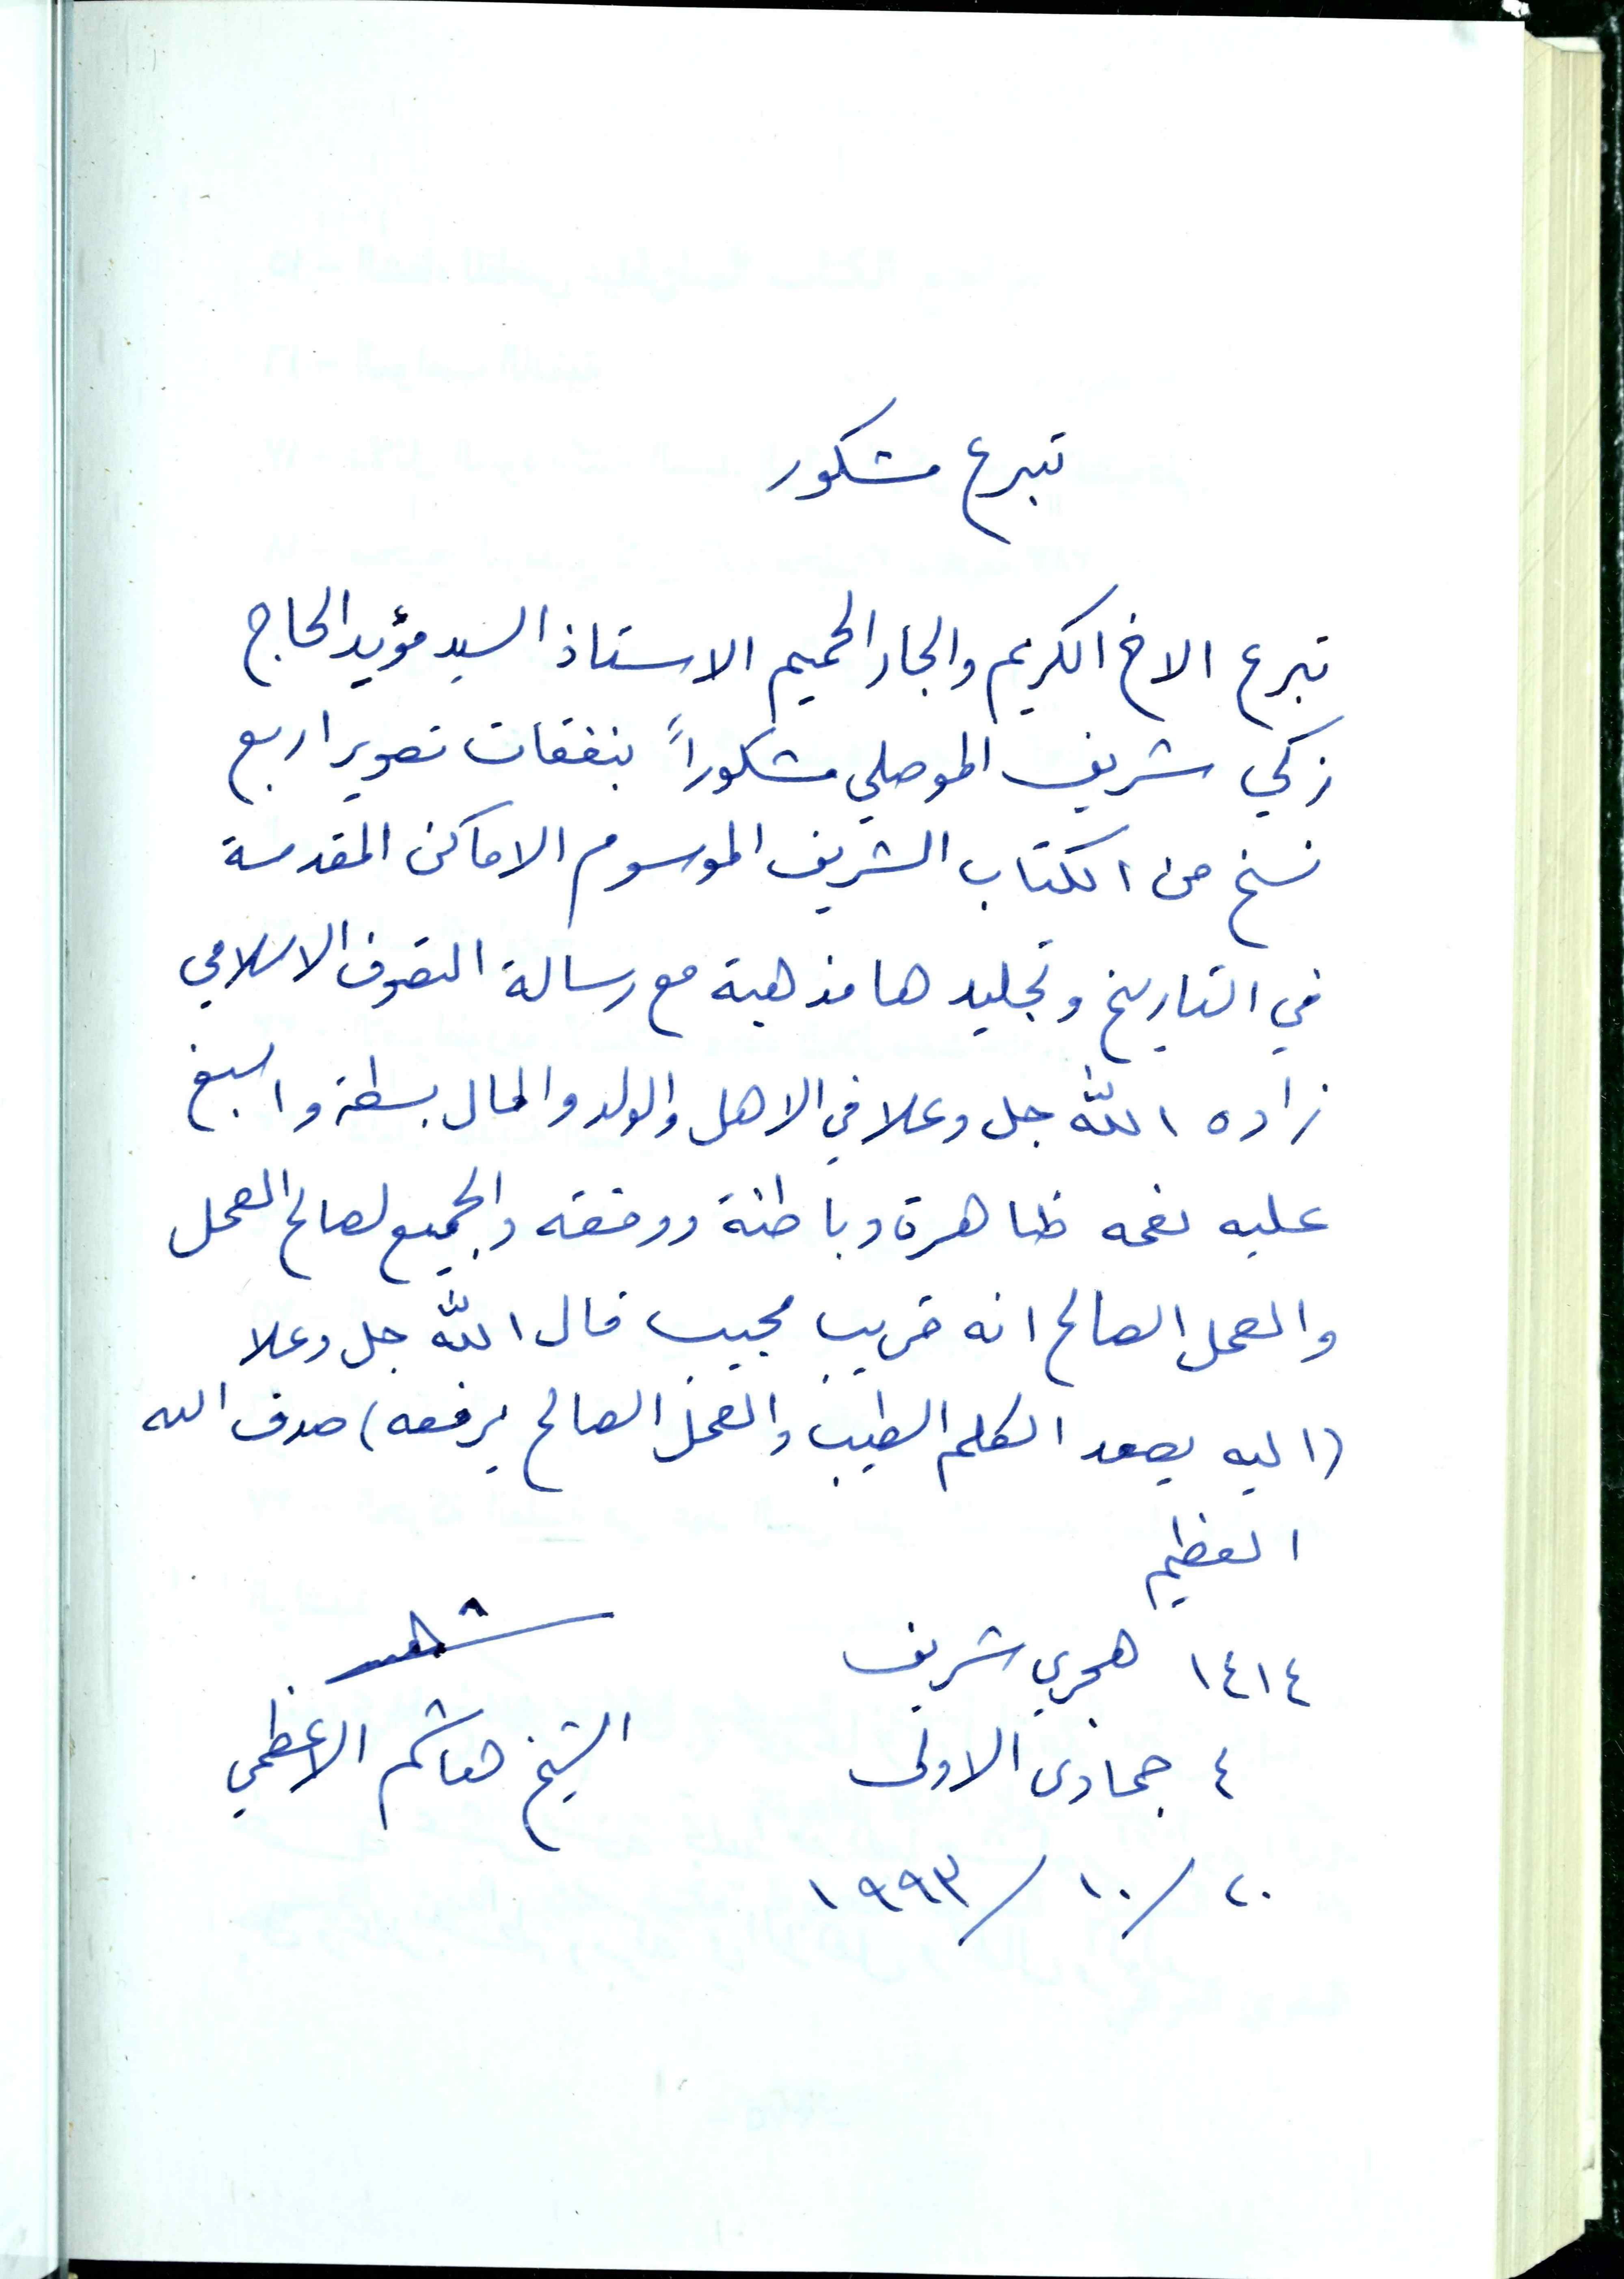 تبرع مشكور
تبرع الاخ الكريم والجار الحميم الاستاذ السيد مؤيد الحاج
زكي شريف الموصلي مشكوراً بنفقات تصوير اربع
نسخ من الكتاب الشريف الموسوم الاماكن المقدسة
في التاريخ وتجليدها مذهبة مع رسالة التصوف الاسلامي
زاده الله جل وعلا في الاهل والولد والمال بسطة واسبغ
عليه نعمه ظاهرة وباطنة ووفقه والجميع لصالح العمل
والعمل الصالح انه قريب مجيب قال الله جل وعلا
(اليه يصعد الكلم الطيب والعمل الصالح يرفعه) صدق الله
العظيم
١٤١٤ هجري شريف
٤ جمادى الاولى الشيخ هاشم الاعظمي
٢٠/١٠/١٩٩٣